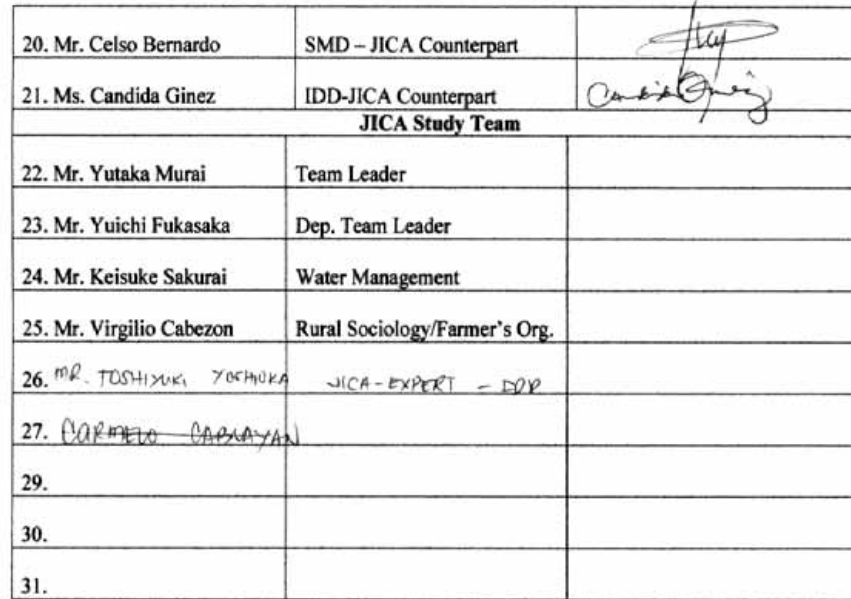 20. Mr. Celso Bernardo SMD – JICA Counterpart
21. Ms. Candida Ginez IDD-JICA Counterpart
JICA Study Team
22. Mr. Yutaka Murai Team Leader
23. Mr. Yuichi Fukasaka Dep. Team Leader
24. Mr. Keisuke Sakurai Water Management
25. Mr. Virgilio Cabezon Rural Sociology/Farmer's Org.
26. MR. TOSHIYUKI YOSHIOKA JICA-EXPERT –
27. CARMELO CABLAYAN
29.
30.
31.